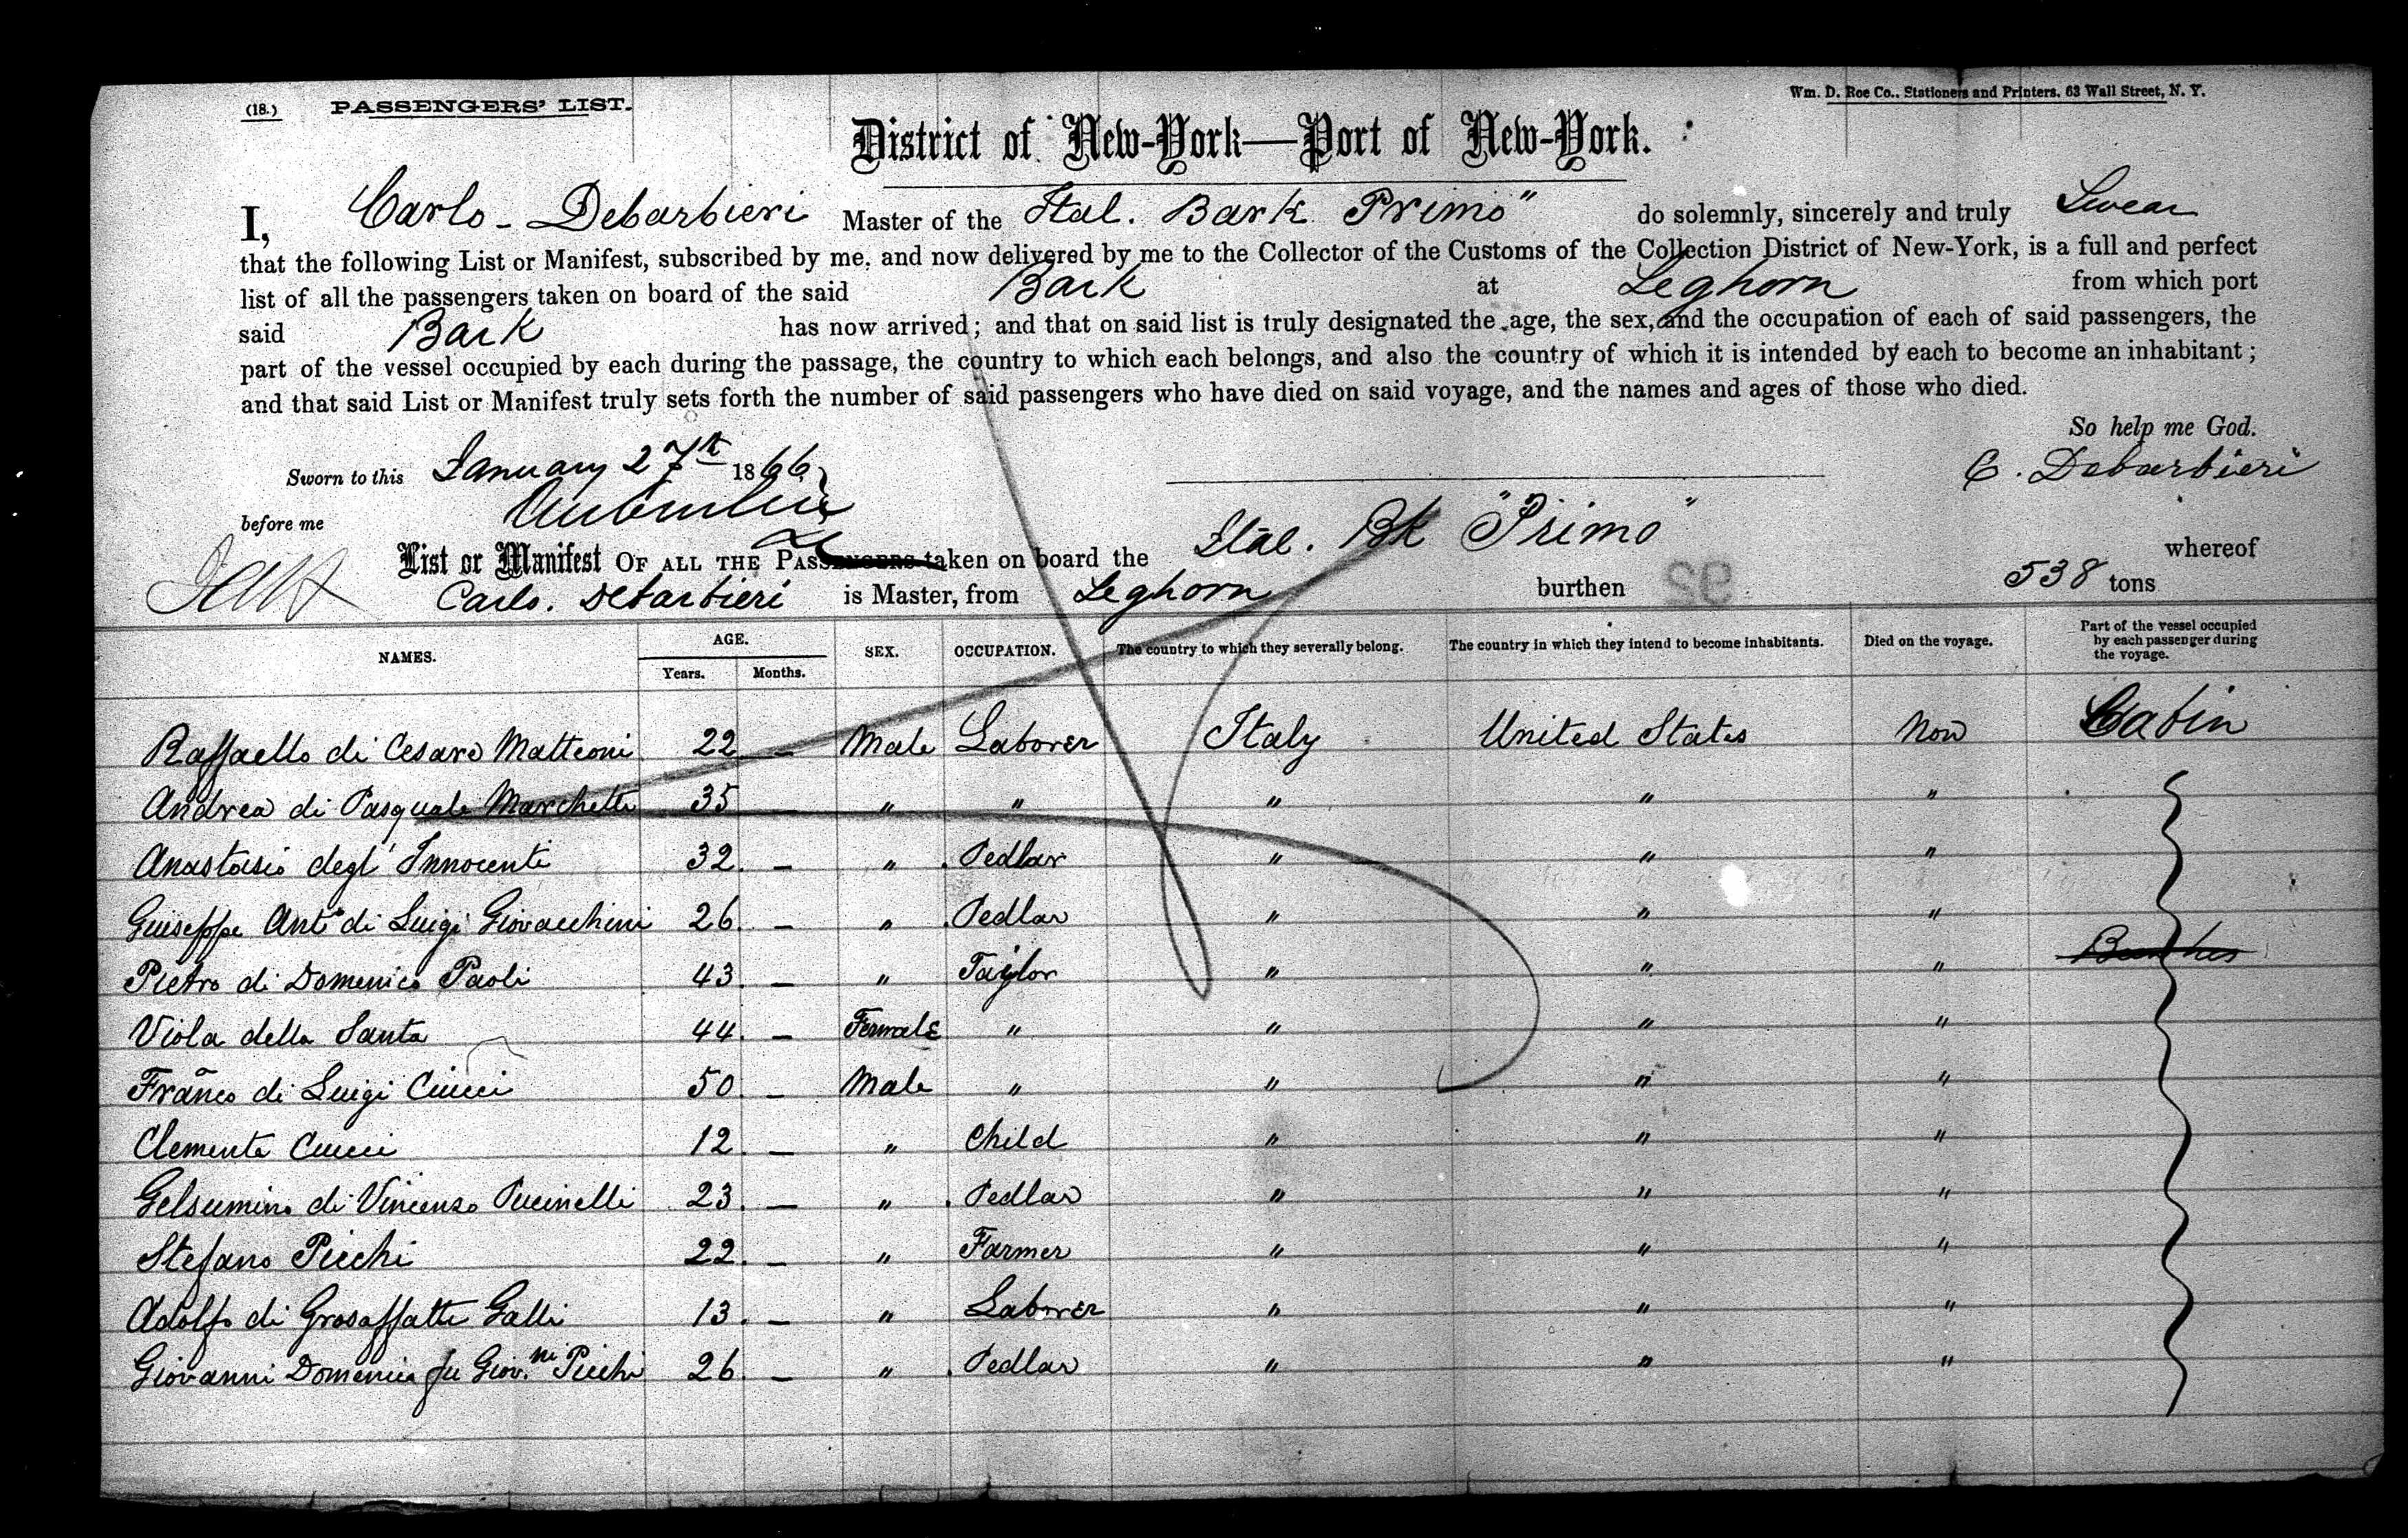 (18.) PASSENGERS' LIST.
Wm. D. Roe Co., Stationers and Printers, 63 Wall Street, N. Y.
District of New-York—Port of New-York.
I, Carlo - Debarbieri Master of the Ital. Bark Primo" do solemnly, sincerely and truly Swear
that the following List or Manifest, subscribed by me, and now delivered by me to the Collector of the Customs of the Collection District of New-York, is a full and perfect
list of all the passengers taken on board of the said Bark at Leghorn from which port
said Bark has now arrived; and that on said list is truly designated the age, the sex, and the occupation of each of said passengers, the
part of the vessel occupied by each during the passage, the country to which each belongs, and also the country of which it is intended by each to become an inhabitant;
and that said List or Manifest truly sets forth the number of said passengers who have died on said voyage, and the names and ages of those who died.
So help me God.
Sworn to this January 27th 1866
C. Debarbieri
before me
List or Manifest OF ALL THE PASSENGERS taken on board the Ital. Bk "Primo" whereof
Carlo. Debarbieri is Master, from Leghorn burthen 92 538 tons
NAMES. AGE. Years. Months. SEX. OCCUPATION. The country to which they severally belong. The country in which they intend to become inhabitants. Died on the voyage. Part of the vessel occupied by each passenger during the voyage.
Raffaello di Cesare Matteoni 22 — Male Laborer Italy United States Non Cabin
Andrea di Pasquale Marchetti 35 — " " " " "
Anastasio degl' Innocenti 32. — " Pedlar " " "
Guiseppe Anto di Luigi Giovacchini 26. — " Pedlar " " "
Pietro di Domenico Paoli 43. — " Taylor " " "
Viola della Santa 44. — Female " " " "
Franco di Luigi Ciucci 50. — Male " " " "
Clemente Ciucci 12. — " Child " " "
Gelsumino di Vincenzo Pucinelli 23. — " Pedlar " " "
Stefano Picchi 22. — " Farmer " " "
Adolfo di Galli 13. — " Laborer " " "
Giovanni Domenico fu Giov.ni Picchi 26. — " Pedlar " " "